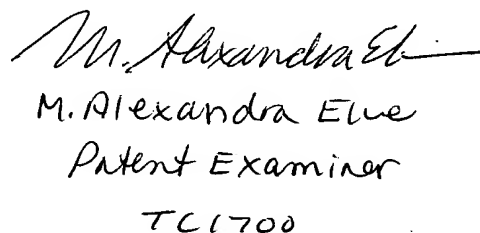 M. Alexandra El
M. Alexandra Elve
Patent Examiner
TC1700